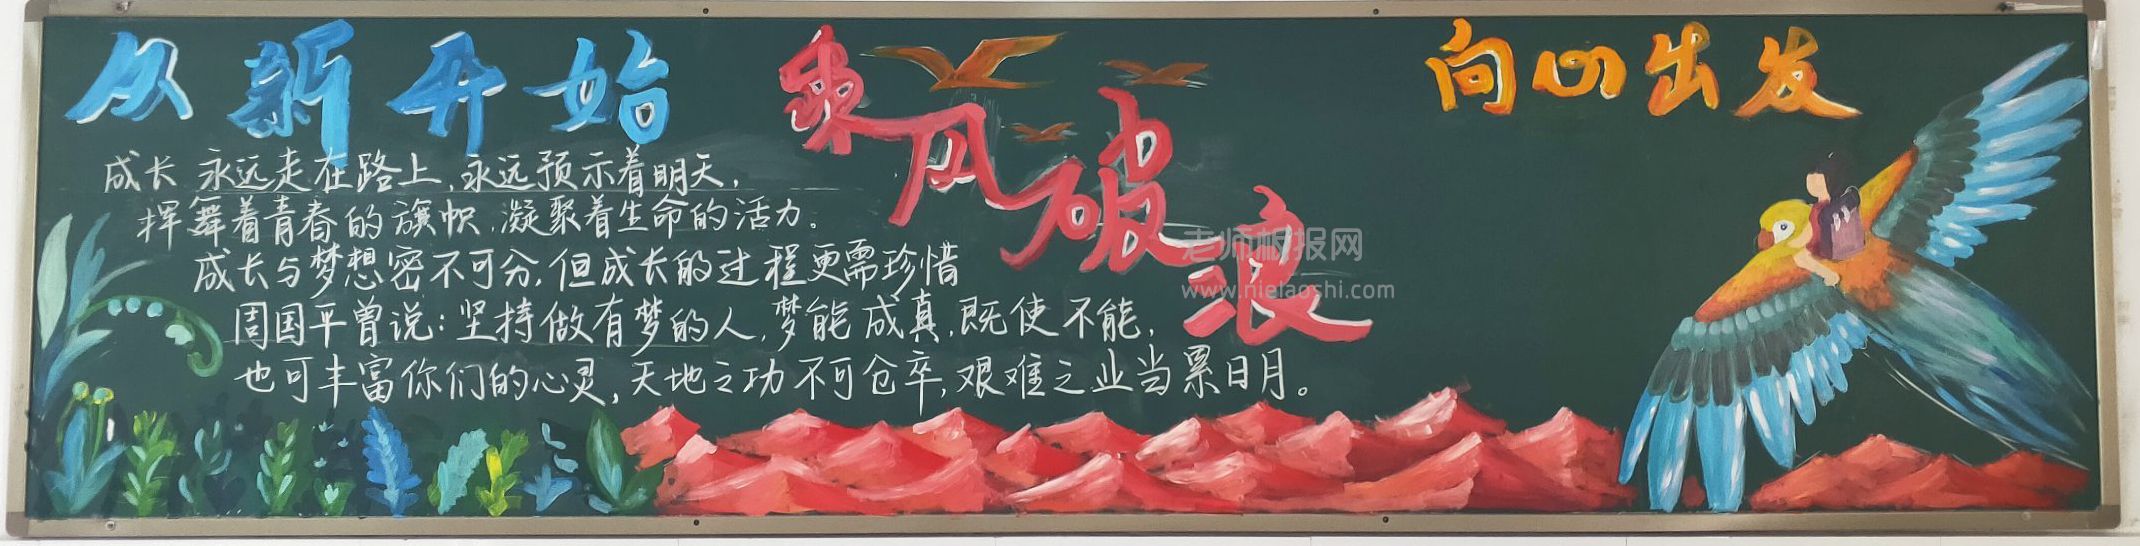 从新开始
乘风破浪
向心出发
成长 永远走在路上,永远预示着明天,
挥舞着青春的旗帜,凝聚着生命的活力。
成长与梦想密不可分,但成长的过程更需珍惜
周国平曾说:坚持做有梦的人,梦能成真,既使不能,
也可丰富你们的心灵,天地之功不可仓卒,艰难之业当累日月。
老师板报网
www.nielaoshi.com